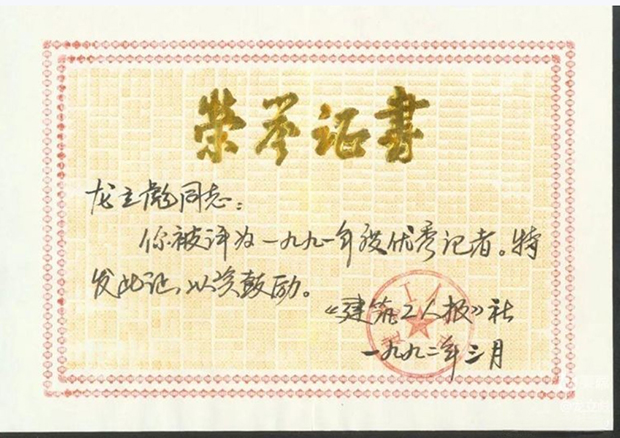 荣誉证书
龙立彪同志：
你被评为一九九一年级优秀记者。特
发此证，以资鼓励。
《建筑工人报》社
一九九二年三月